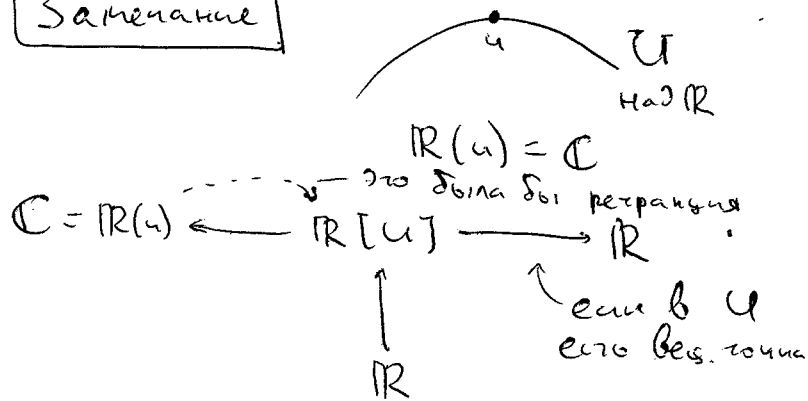 Замечание
u
U
над ℝ
ℝ(u) = ℂ
это была бы ретракция
ℂ = ℝ(u) ← ℝ[U] → ℝ
если в U
есть вещ. точка
ℝ